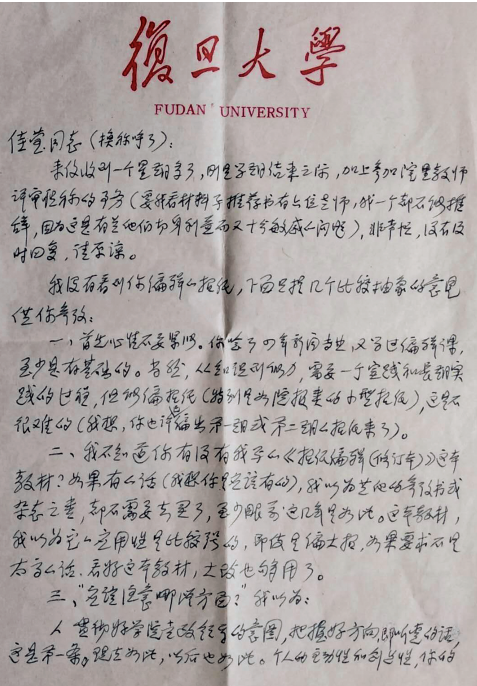 復旦大學
FUDAN UNIVERSITY
佳莹同志（换称呼了）：
来信收到一个星期多了，刚是学期结束之际，加上参加院里教师
评审职称的事务（要我看材料予推荐书有七位老师，我一个都不能推
辞，因为这是有关他们切身利益而又十分敏感的问题），非常忙，没有及
时回复，请原谅。
我没有看到你编辑的报纸，下面只提几个比较抽象的意见
供你参考：
一、首先心情不要紧张。你学了四年新闻专业，又学过编辑课，
至少是有基础的。当然，从知识到能力，需要一个实践和长期实
践的过程，但能编报纸（特别是如院报来的小型报纸），这是不
很难的（我想，你也许编出第一期或第二期的报纸来了）。
二、我不知道你有没有我写的《报纸编辑（修订本）》这本
教材？如果有的话（我想你是应该有的），我以为其他的参考书或
杂志之类，都不需要去買了，至少眼前这几年是如此。这本教材，
我以为它的实用性是比较强的，即使是编大报，如果要求不是
太高的话，看好这本教材，大致也够用了。
三、“应该注意哪些方面？”我以为：
1、贯彻好学院党政领导的意图，把握好方向，即俗语的话，
这是第一条。现在如此，以后也如此。个人的主动性和创造性，你的